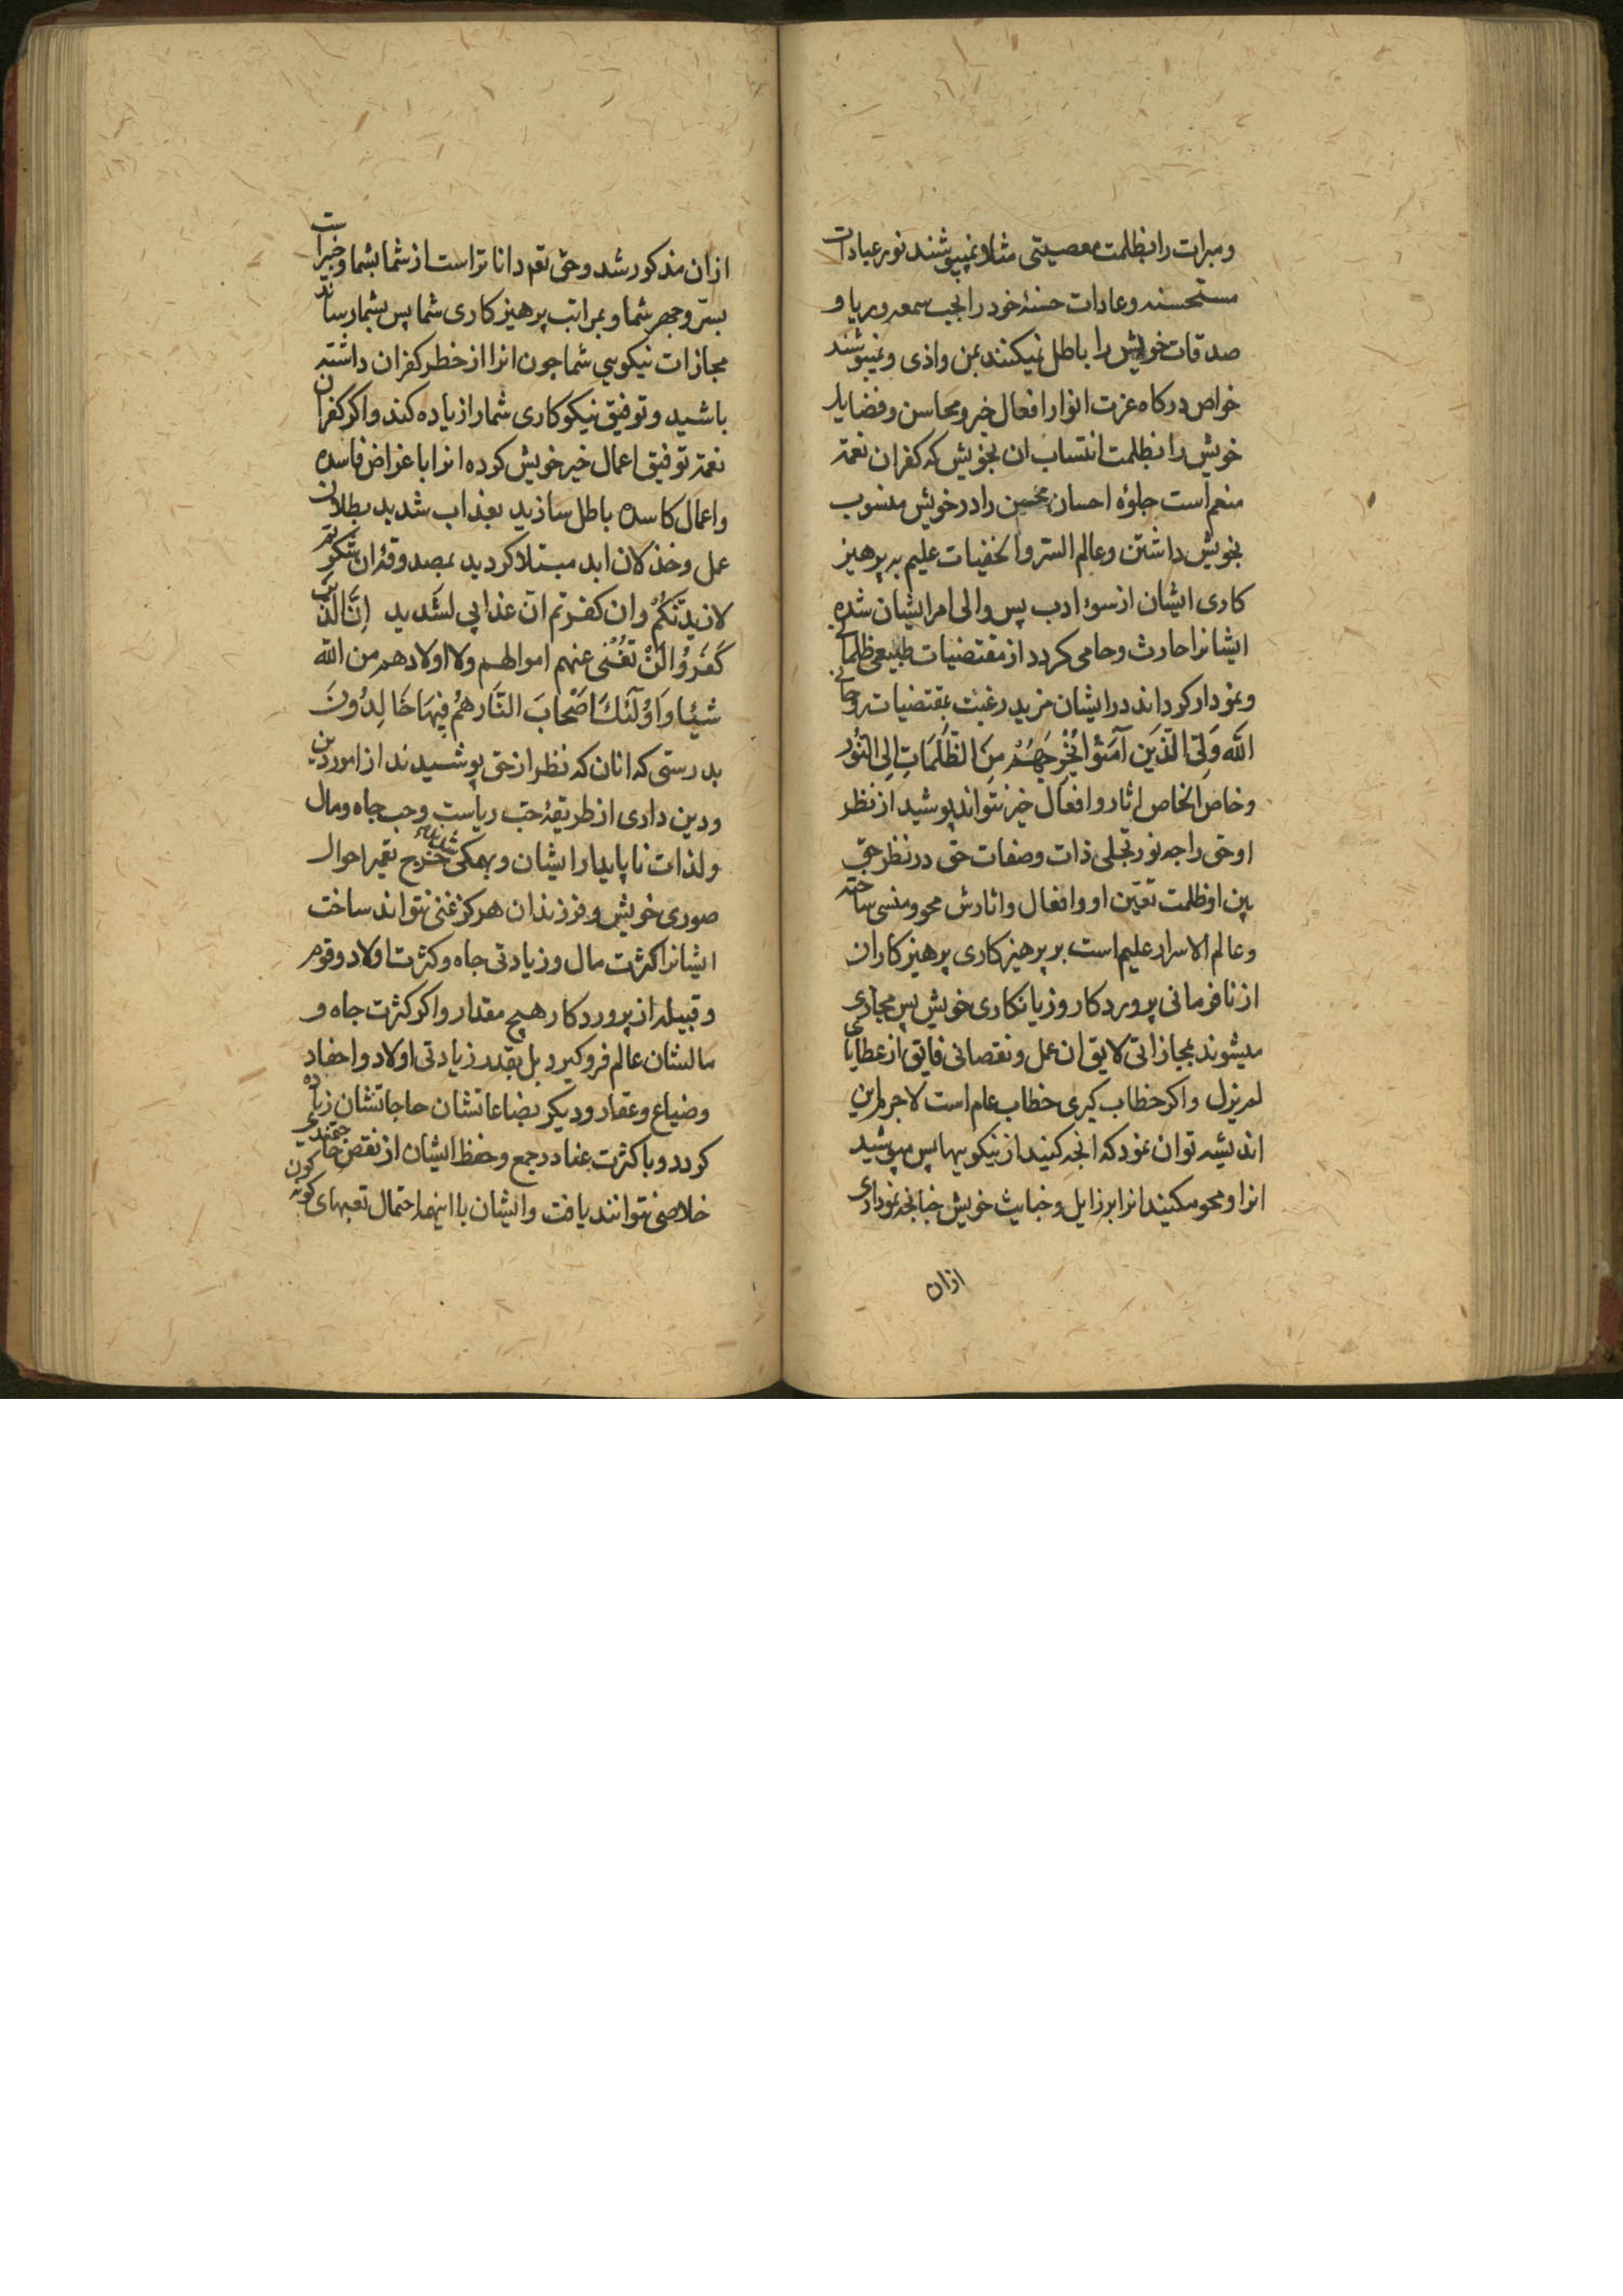 ومبرات را بظلمت معصیتی مثلا و نمیپوشند نور عبادات
مستحسنه و عادات حسنۀ خود را بحجب سمعه و ریا و
صدقات خویش را باطل نمیکنند بمن و اذی و نمیپوشند
خواص درکاه عزت انوار افعال خیر و محاسن و فضایل
خویش را بظلمت انتساب ان بخویش که کفران نعمة
منعم است جلوۀ احسان محسن را در خویش منسوب
بخویش داشتن و عالم السر و الخفیات علیم بر پرهیز
کاری ایشان از سوء ادب پس والی امر ایشان شده
ایشانرا حارث و حامی کردد از مقتضیات طبیعی ظلمانی
و نمودار کرداند در ایشان مزید رغبت بمقتضیات روحانی
اللَّه وَلِیّ الَّذَینَ آمَنُوا یُخْرِجَهُمْ مِنَ الظُّلُمَاتِ اِلیَ النُّوْر
و خاص الخاص اثار و افعال خیر نتواند پوشید از نظر
او حق را چه نور تجلی ذات و صفات حق در نظر حق
بین او ظلمت تعیّن او و افعال و اثارش محو و منسی ساخته
و عالم الاسرار علیم است بر پرهیزکاری پرهیزکاران
از نافرمانی پروردکار و زیانکاری خویش پس مجازی
میشوند بمجازاتی لایق ان عمل و نقصانی فایق از عطایای
لم یزل و اکر خطاب کیری خطاب عام است لاجرم این
اندیشه توان نمود که انچه کنید از نیکوییها پس مپوشید
انرا و محو مکنید انرا برزایل و خبایث خویش چنانچه نموداری
ازان
ازان مذکور شد و حق تعم داناتر است از شما بشما و خبیر است
بسرّ و جهر شما و بمراتب پرهیزکاری شما پس بشما رساند
مجازات نیکویی شما چون انرا از خطر کفران داشته
باشید و توفیق نیکوکاری شما را زیاده کند و اکر کفران
نعمة توفیق اعمال خیر خویش کرده انرا باغراض فاسده
و اعمال کاسده باطل سازید بعذاب شدید بطلان
عمل و خذلان ابد مبتلا کردید بمصدوقۀ لئن شکرتم
لازیدنّکُمْ و ان کفرتم انّ عذابی لشدید اِنَّ الَّذَینَ
کَفَرُوْا لَنْ تُغْنی عنهم اموالهم ولا اولادهم من اللّه
شیئا وَ اوُلَئِکَ اَصْحَابَ النَّار هُمْ فِیهَا خَالِدُوْنَ
بدرستی که انان که نظر از حق پوشیدند از امور دین
و دین داری از طریقۀ حبّ ریاست و حب جاه و مال
و لذات ناپایدار ایشان و بهمکی خرج تعمیر احوال
صوری خویش و فرزندان هرکز غنی نتواند ساخت
ایشانرا کثرت مال و زیادتی جاه و کثرت اولاد و قوم
و قبیله از پروردکار هیچ مقدار و اکر کثرت جاه و
مالشان عالم فرو کیرد بل بقدر زیادتی اولاد و احفاد
و ضیاع و عقار و دیکر بضاعاتشان حاجاتشان زیاده
کردد و با کثرت عنا در جمع و حفظ ایشان از نقص حاجتمندی
خلاصی نتوانند یافت و ایشان با اینهمه احتمال تعبهای کوناکون